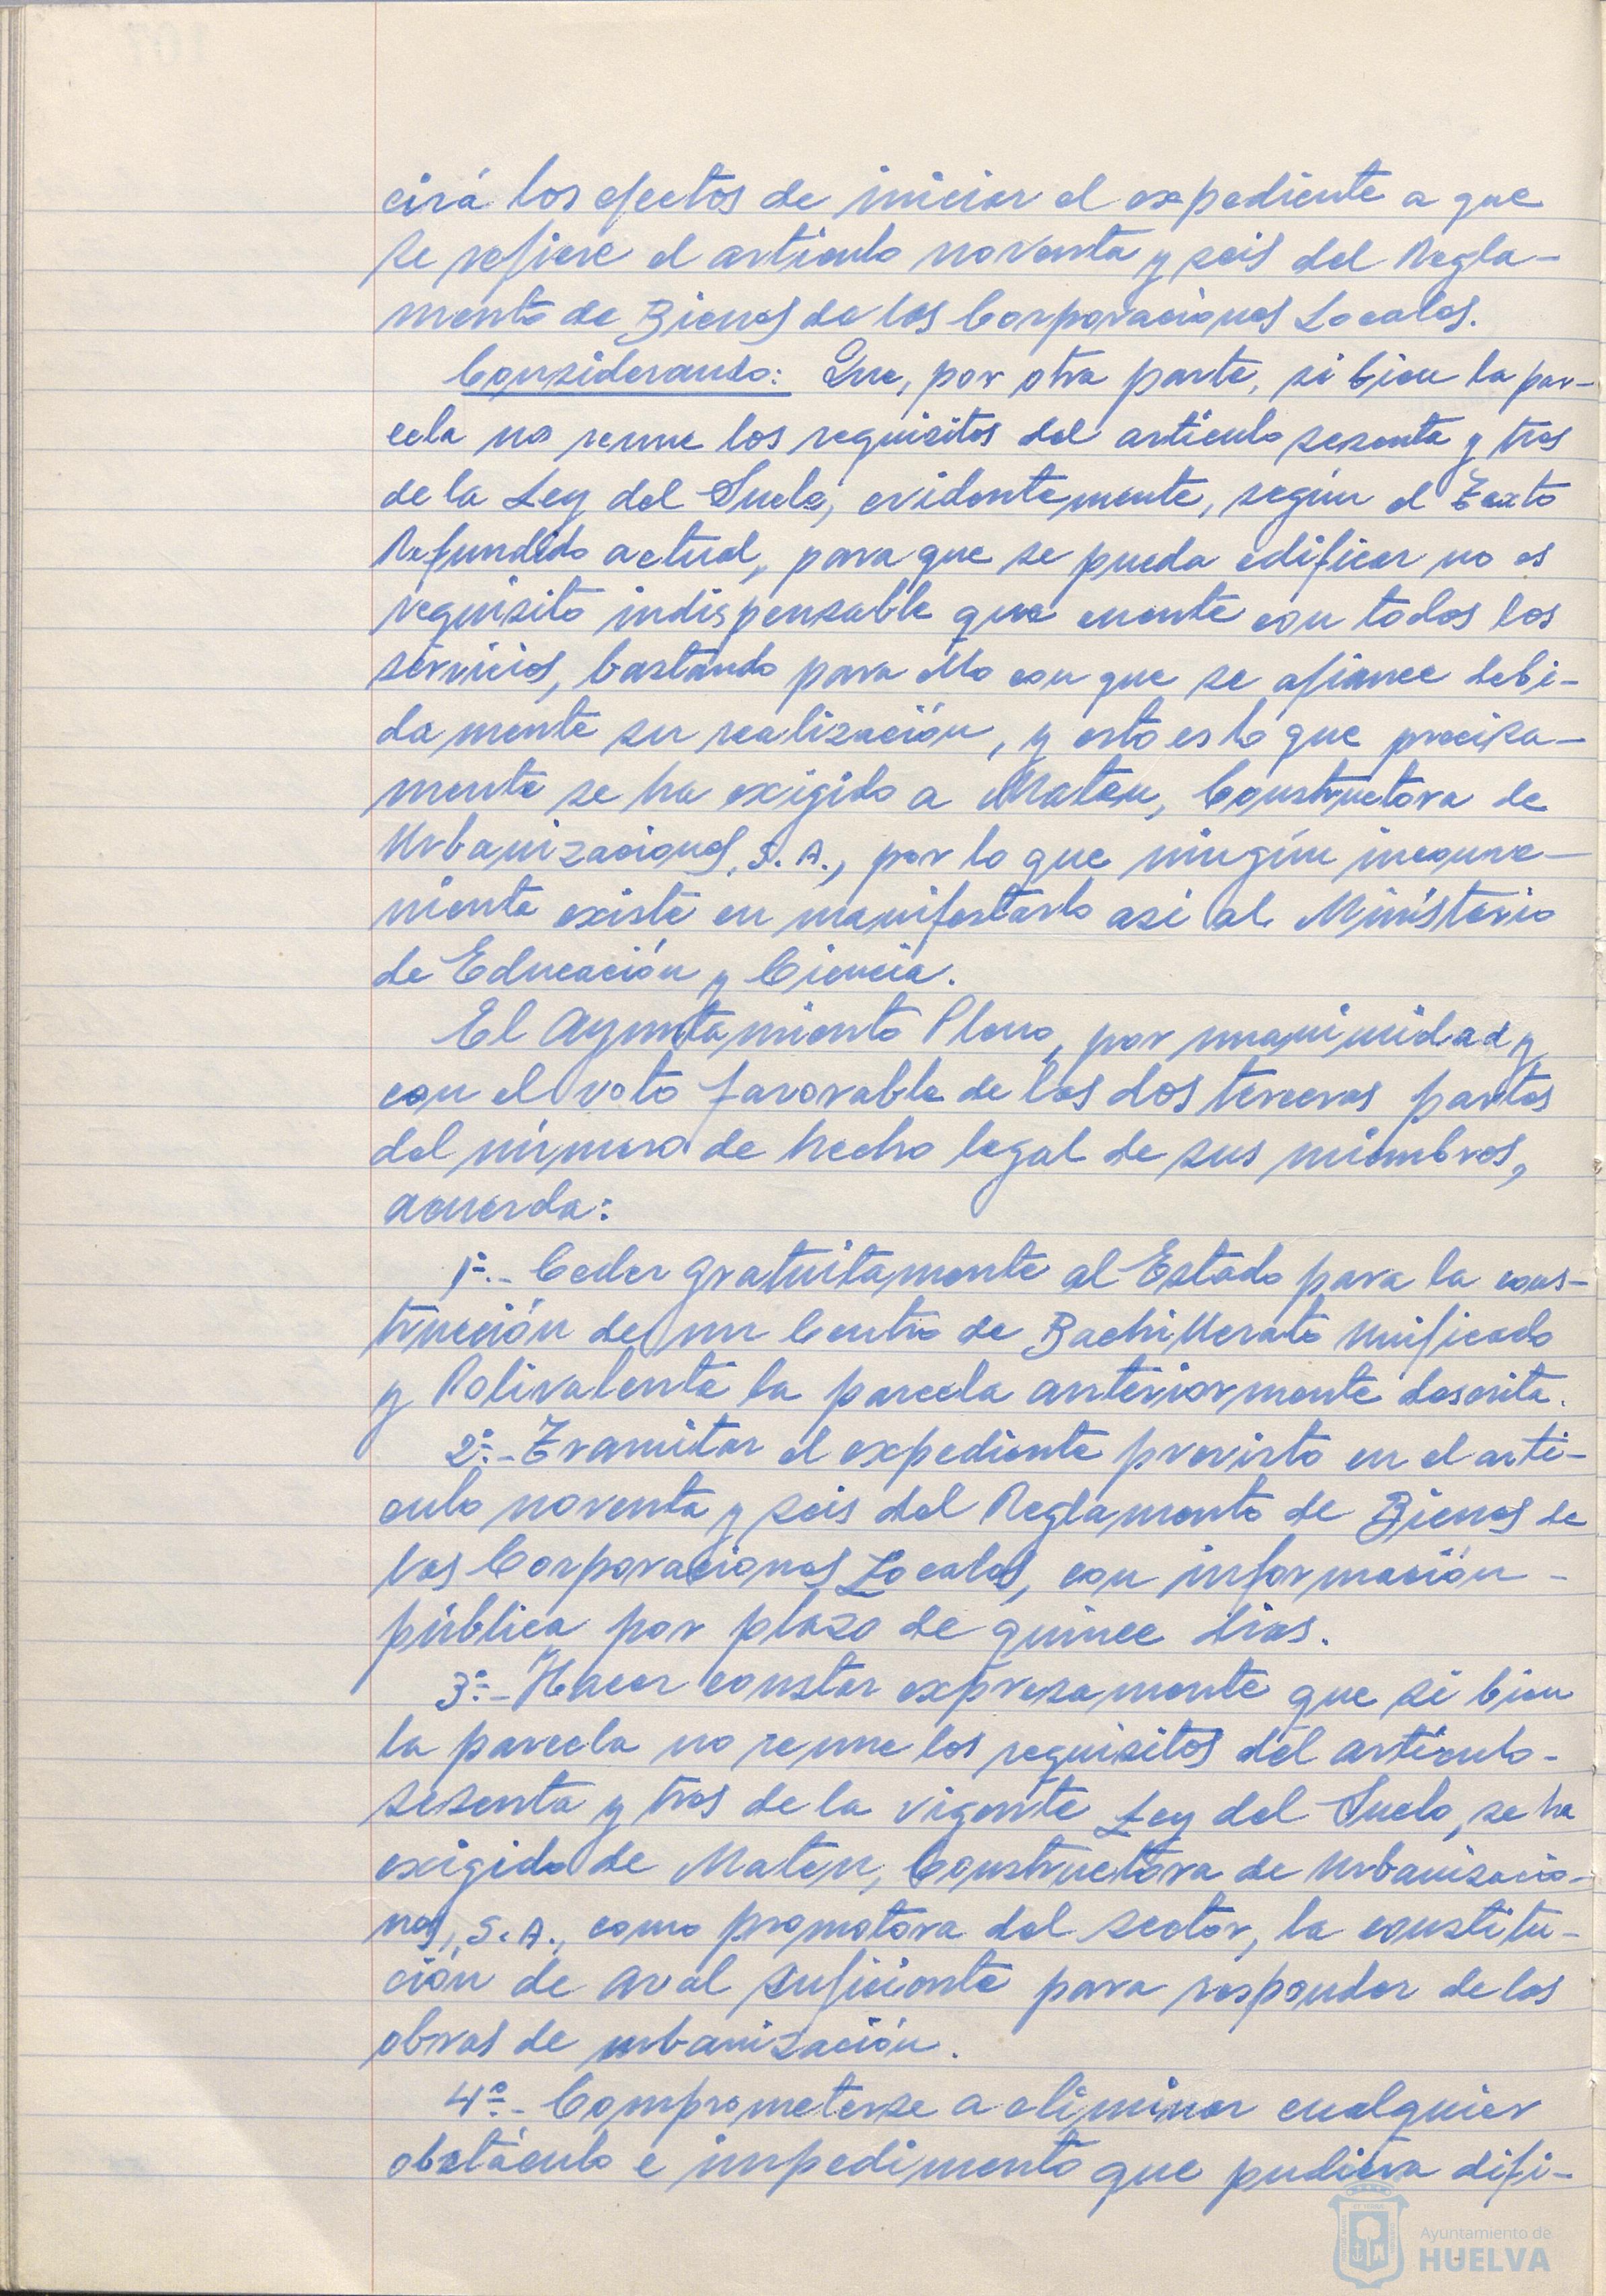 cirá los efectos de iniciar el expediente a que
se refiere el artículo noventa y seis del Regla-
mento de Bienes de las Corporaciones Locales.
Considerando: Que, por otra parte, si bien la par-
cela no reune los requisitos del artículo sesenta y tres
de la Ley del Suelo, evidentemente, según el Texto
Refundido actual, para que se pueda edificar no es
requisito indispensable que cuente con todos los
servicios, bastando para ello con que se afiance debi-
damente su realización, y esto es lo que precisa-
mente se ha exigido a Maten, Constructora de
Urbanizaciones, S.A., por lo que ningún inconve-
niente existe en manifestarlo así al Ministerio
de Educación y Ciencia.
El Ayuntamiento Pleno, por unanimidad y
con el voto favorable de las dos terceras partes
del número de hecho legal de sus miembros,
acuerda:
1º.- Ceder gratuitamente al Estado para la cons-
trucción de un Centro de Bachillerato Unificado
y Polivalente la parcela anteriormente descrita.
2º.- Tramitar el expediente previsto en el artí-
culo noventa y seis del Reglamento de Bienes de
las Corporaciones Locales, con información -
pública por plazo de quince días.
3º.- Hacer constar expresamente que si bien
la parcela no reune los requisitos del artículo-
sesenta y tres de la vigente Ley del Suelo, se ha
exigido de Maten, Constructora de Urbanizacio-
nes, S.A., como promotora del sector, la constitu-
ción de aval suficiente para responder de las
obras de urbanización.
4º.- Comprometerse a eliminar cualquier
obstáculo e impedimento que pudiera difi-
Ayuntamiento de
HUELVA